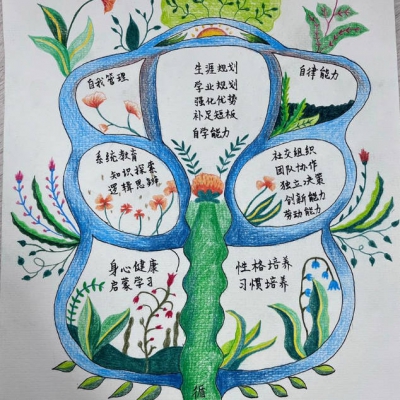 自我管理
生涯规划
学业规划
强化优势
补足短板
自学能力
自律能力
系统教育
知识探索
逻辑思辨
社交组织
团队协作
独立决策
创新能力
劳动能力
身心健康
启蒙学习
性格培养
习惯培养
循